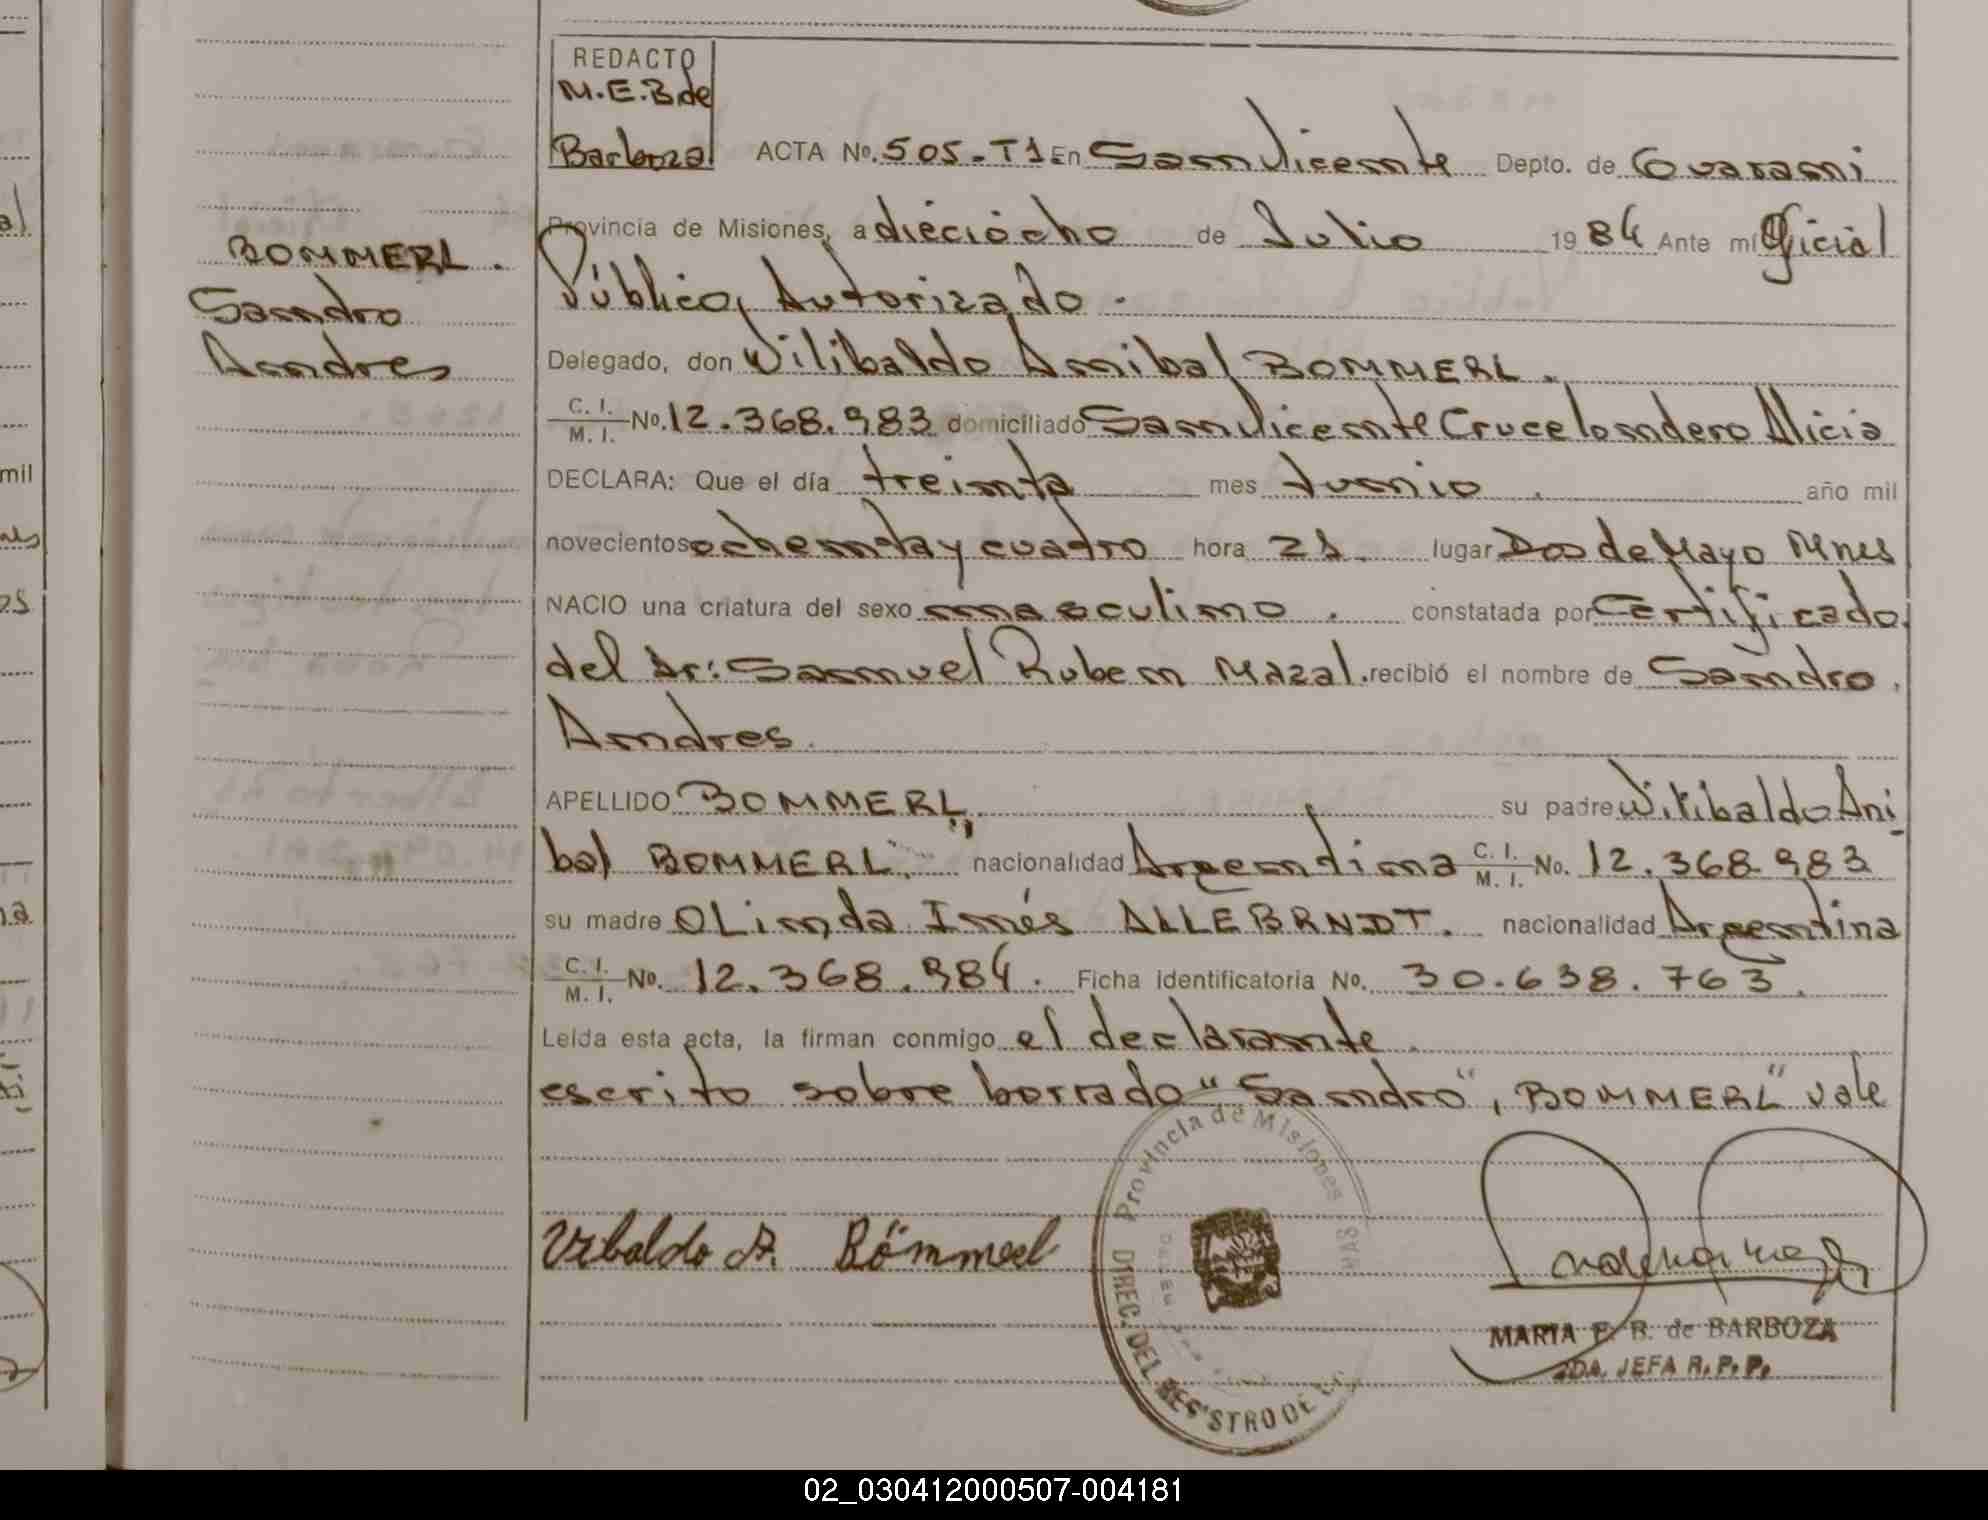 REDACTO
M.E.B de
Barboza
ACTA No. 505.-T1 En San Vicente Depto. de Guarani
Provincia de Misiones, a dieciocho de Julio 1984 Ante mí Oficial
Público, Autorizado.
BOMMERL.
Sandro
Andres
Delegado, don Wilibaldo Anibal BOMMERL.
C. I. / M. I. No. 12.368.983 domiciliado San Vicente Cruce Londero Alicia
DECLARA: Que el día treinta mes Junio. año mil
novecientos ochenta y cuatro hora 21. lugar Dos de Mayo Mnes
NACIO una criatura del sexo masculino. constatada por Certificado
del Dr: Samuel Ruben Mazal. recibió el nombre de Sandro
Andres.
APELLIDO BOMMERL su padre Wilibaldo Ani
bal BOMMERL. nacionalidad Argentina C. I. / M. I. No. 12.368.983
su madre OLinda Inés ALLEBRNDT. nacionalidad Argentina
C. I. / M. I. No. 12.368.984. Ficha identificatoria No. 30.638.763.
Leída esta acta, la firman conmigo el declarante.
escrito sobre borrado "Sandro", BOMMERL" vale
Provincia de Misiones
DIREC. DEL REGISTRO DE
MARIA E. B. de BARBOZA
2DA. JEFA R. P. P.
02_030412000507-004181